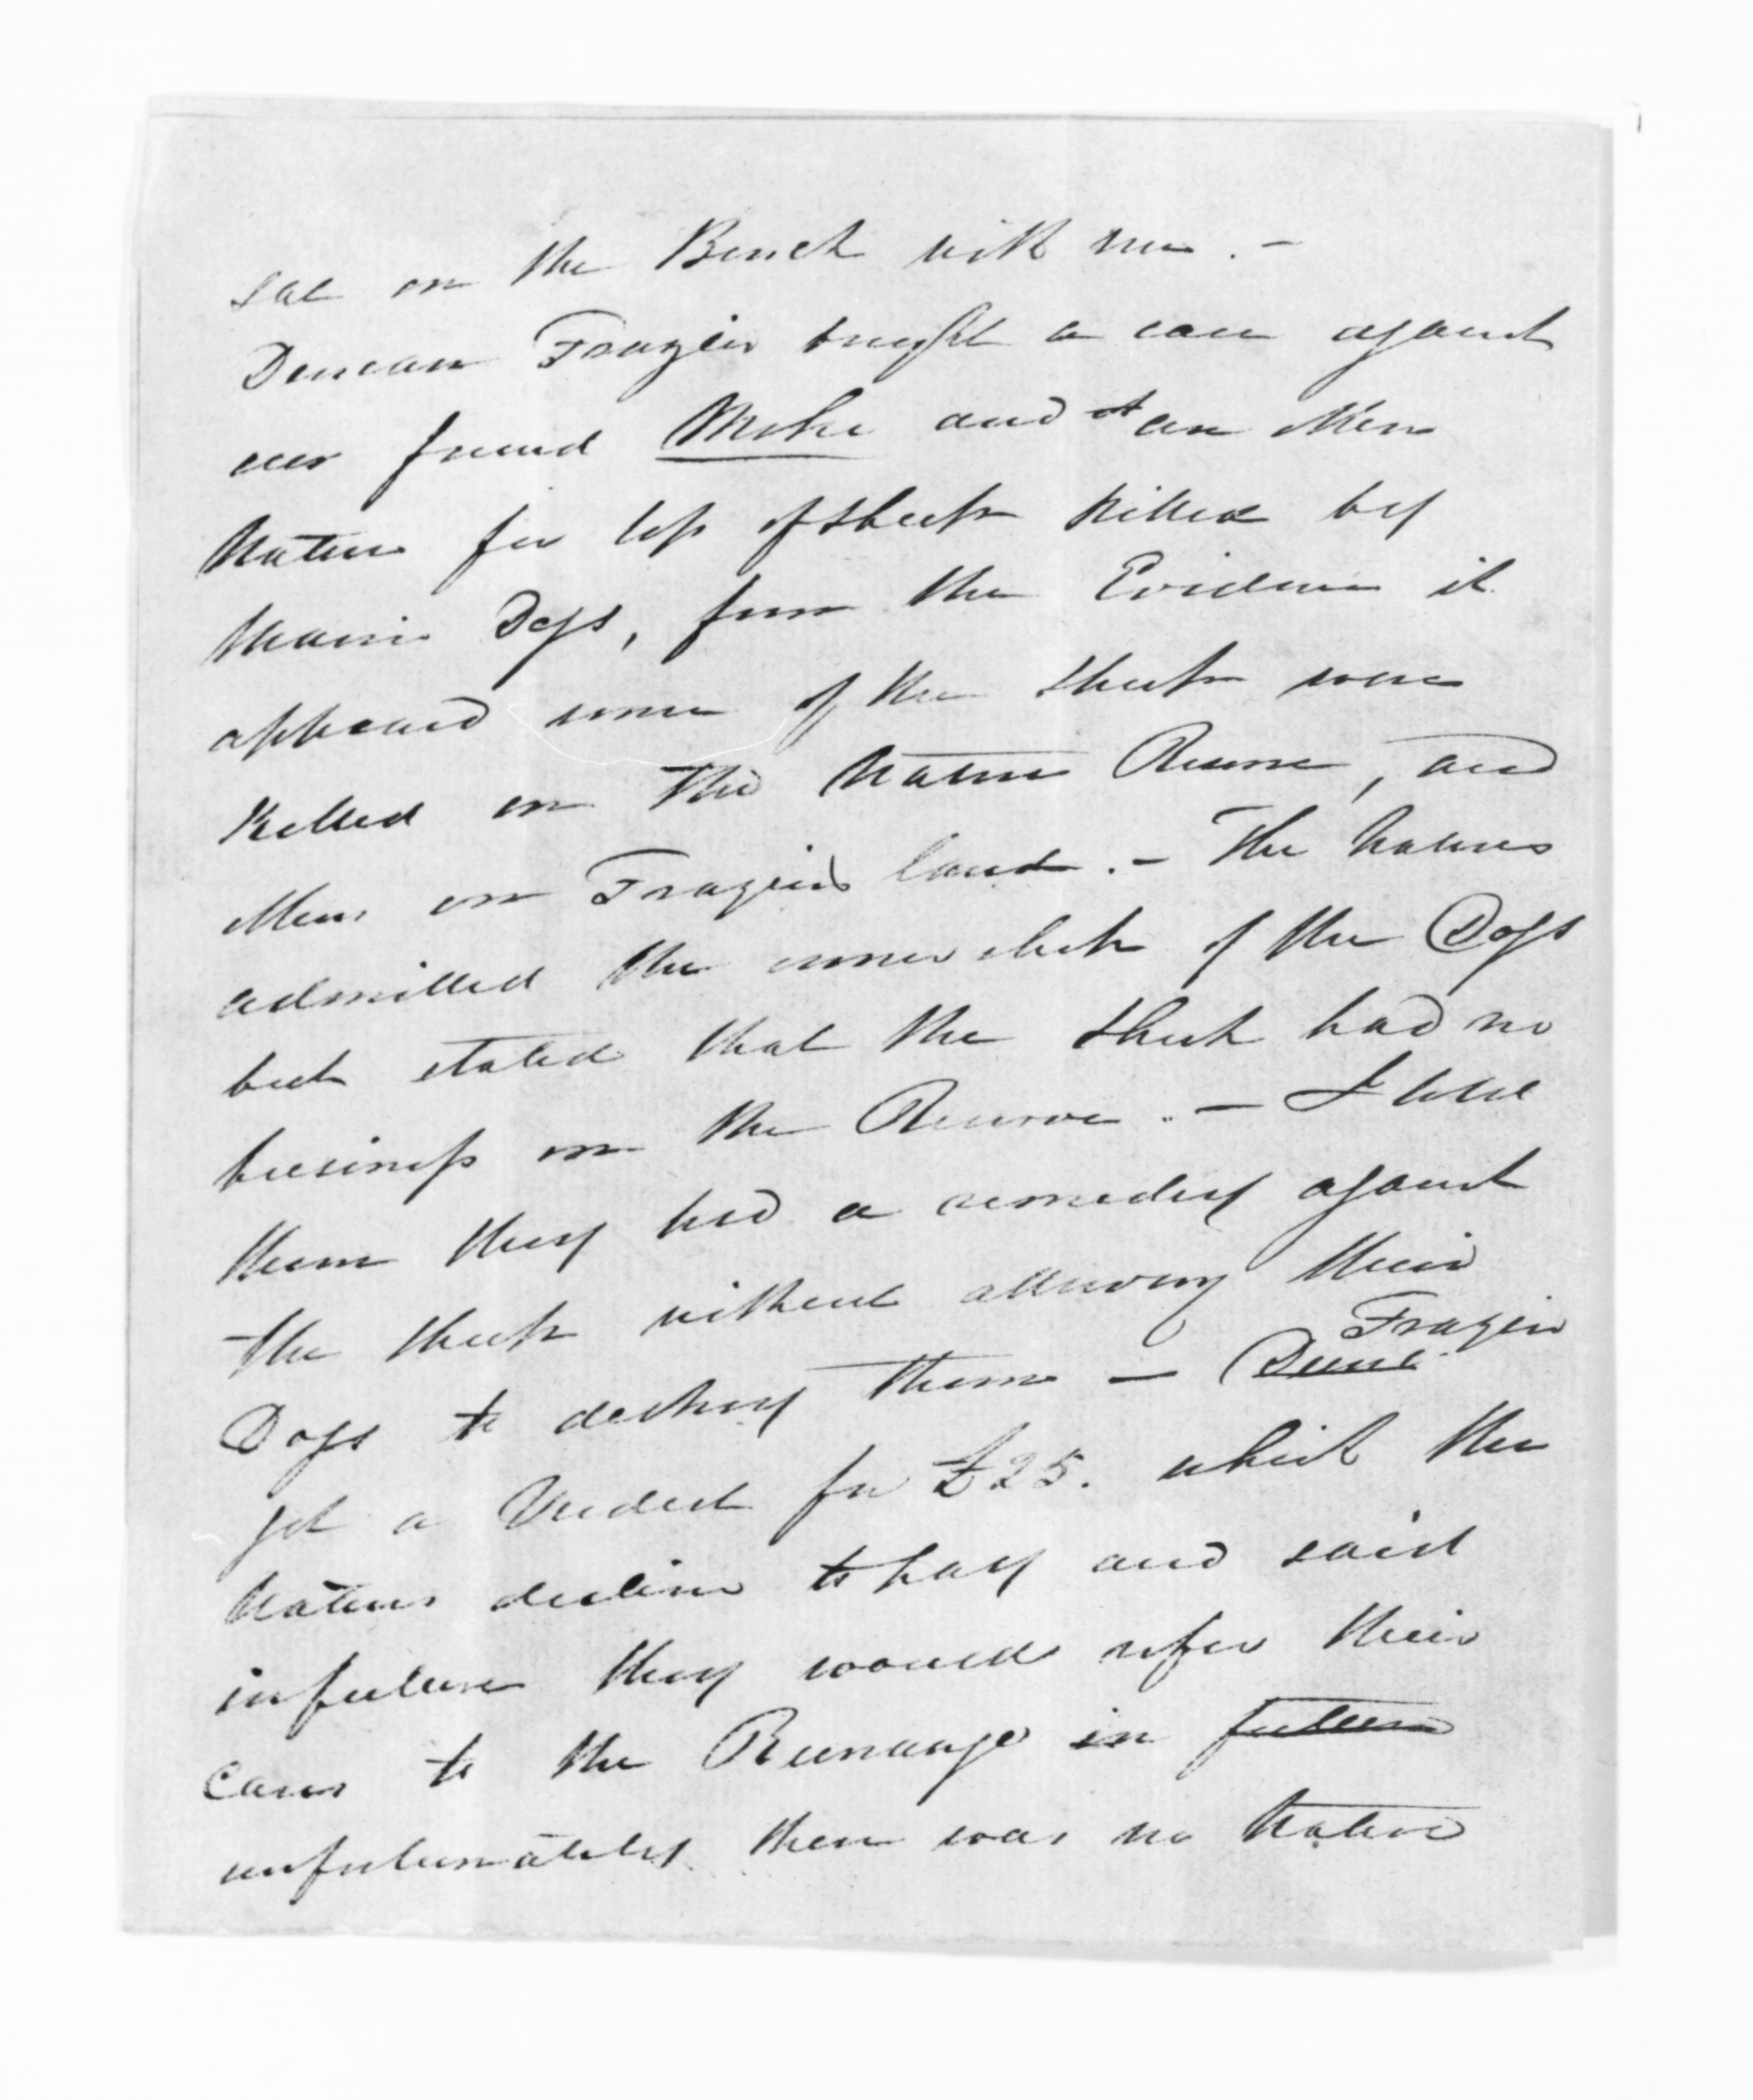 sat on the Bench with me. -
Duncan Frazer brought a case against
our friend Moke and an other
Native for loss of sheep killed by
Maori Dogs, from the Evidence it
appeared some of the sheep were
Killed on the Native Reserve, and
others on Frazers land. - The Natives
admitted the ownership of the Dogs
but stated that the sheep had no
business on the Reserve. - I told
them they had a remedy against
the sheep without allowing their
Frazer
Dogs to destroy them -
got a Verdict for £25. which the
Natives decline to pay and said
in future they would refer their
cases to the Runanga in future
unfortunately there was no Native